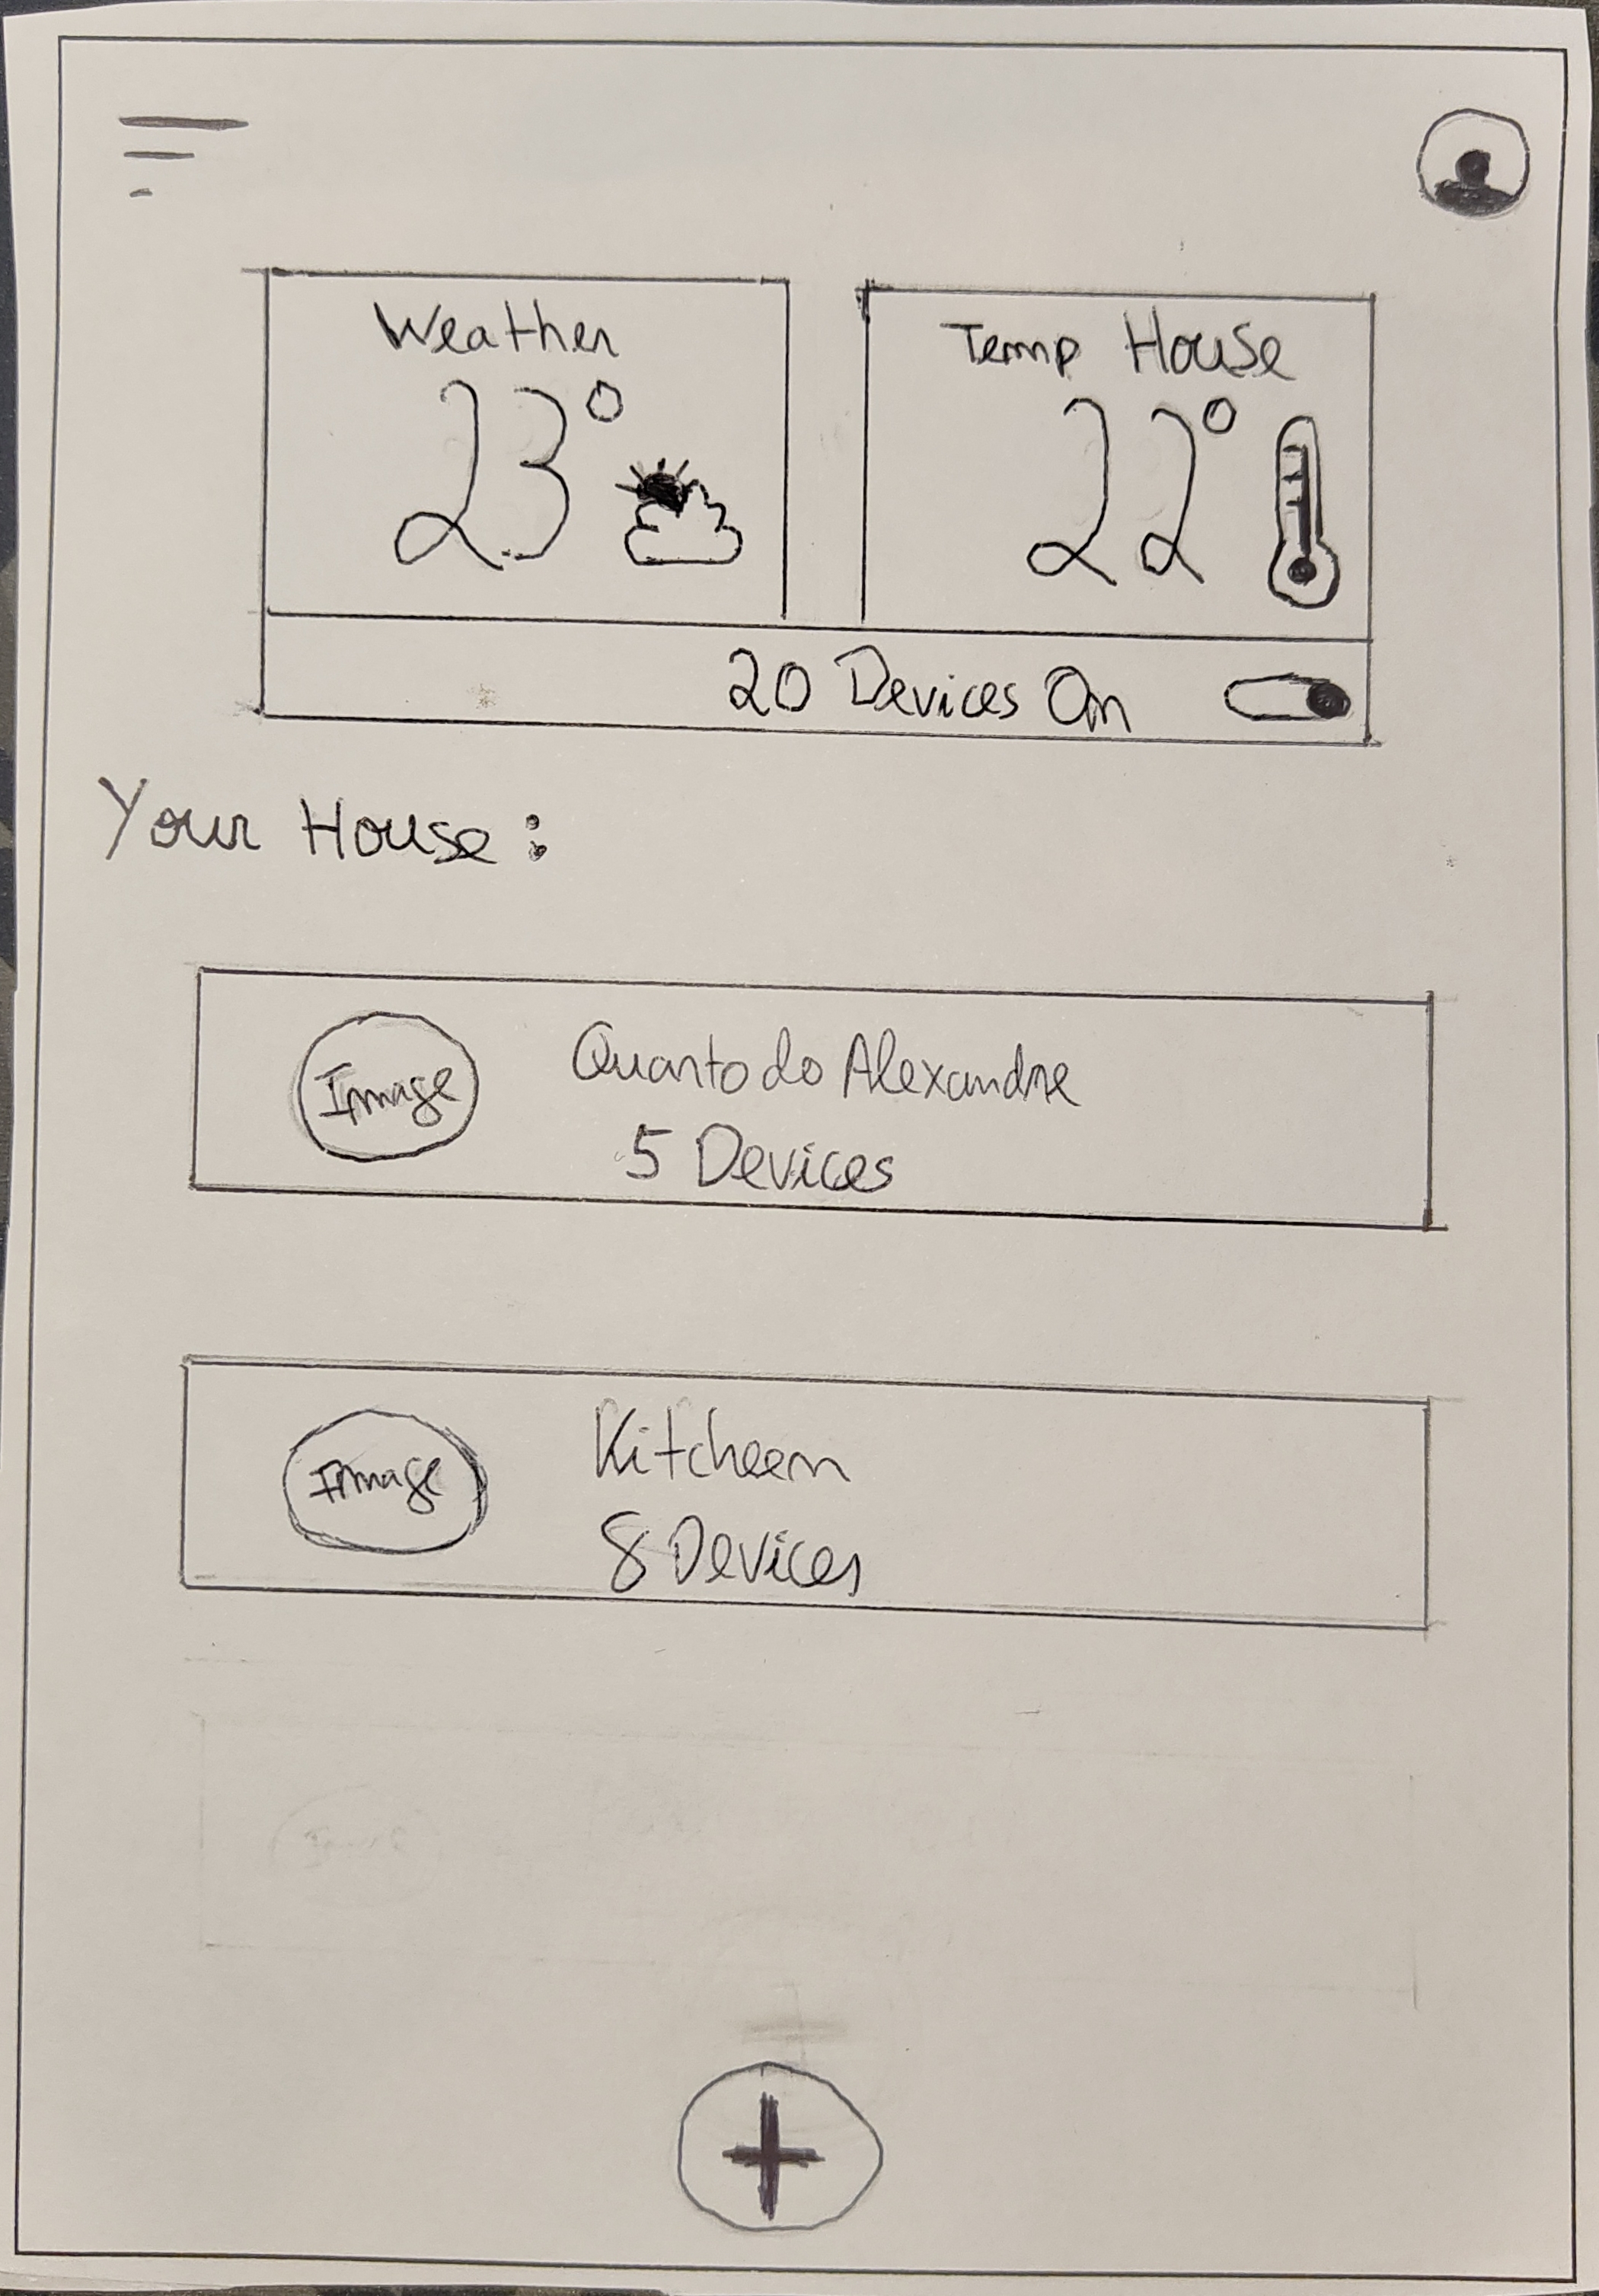 Weather
23°
Temp House
22°
20 Devices On
Your House:
Image
Quarto do Alexandre
5 Devices
Image
Kitcheen
8 Devices